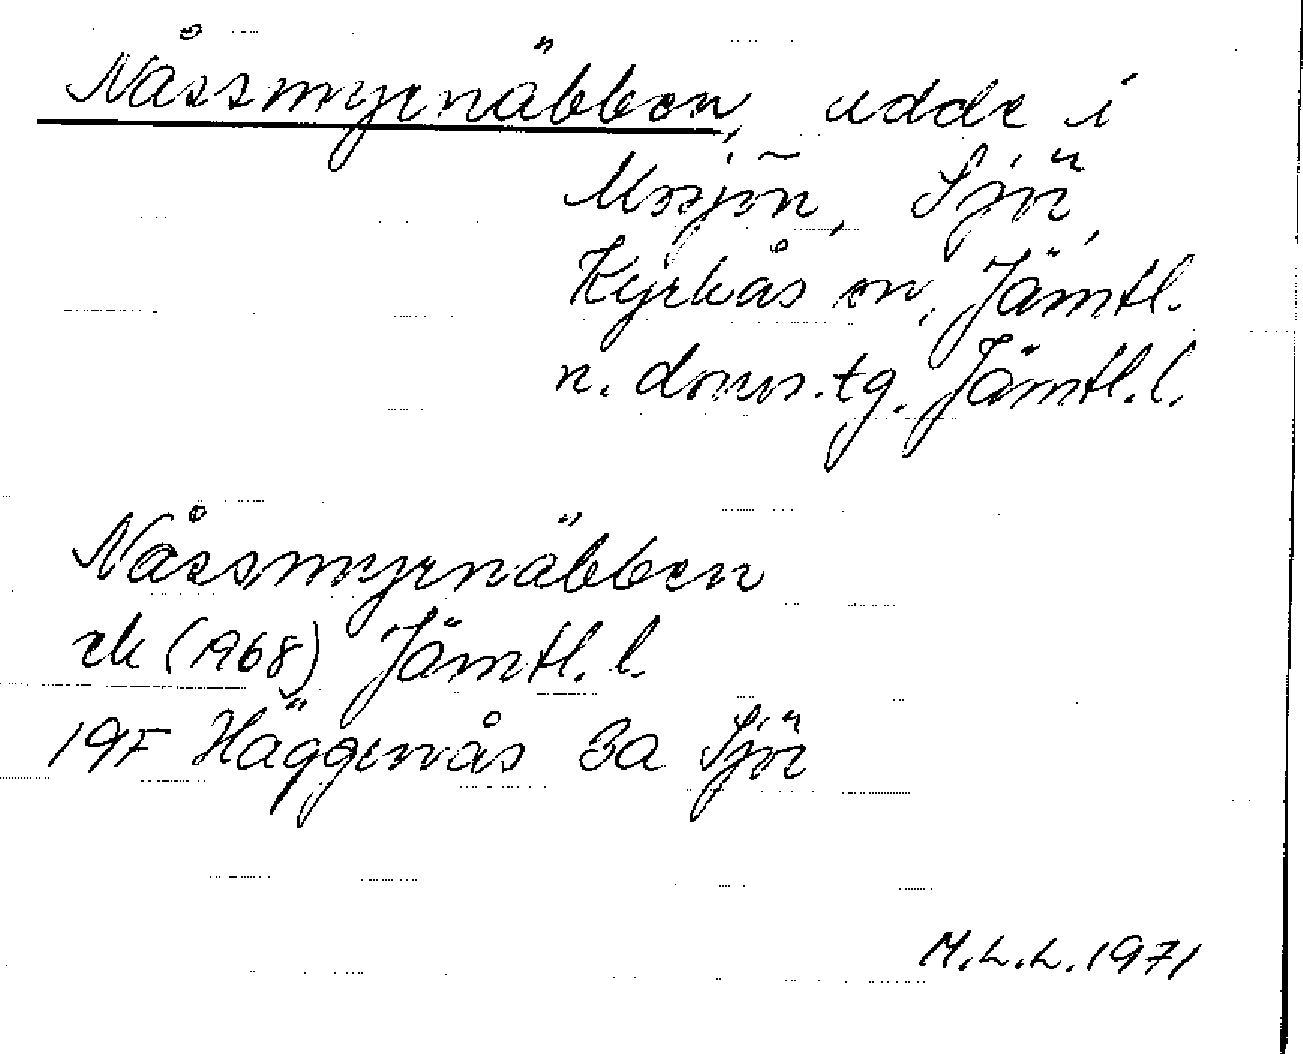 Nåssmyrnäbben, udde i
Mosjön, Sjör,
Kyrkås sn, Jämtl.
n. doms.tg. Jämtl.l.
Nåssmyrnäbben
ek (1968) Jämtl. l.
19F Häggenås 3a Sjör
M.L.L. 1971